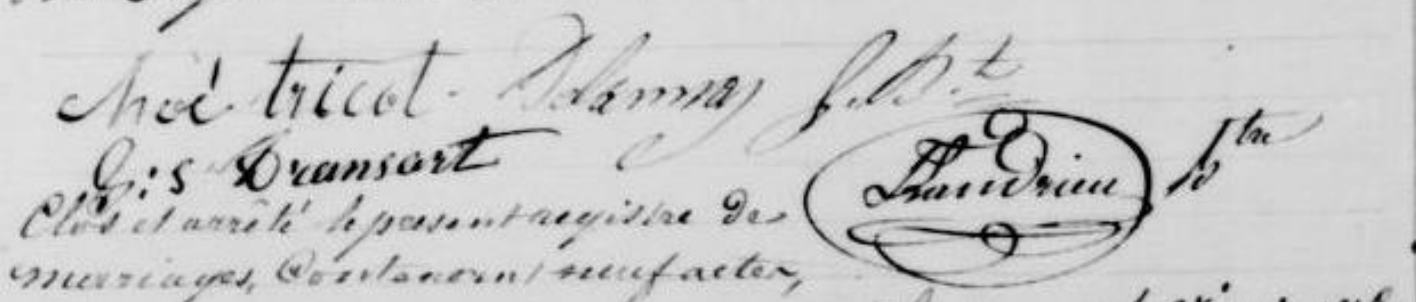 Noé tricot. Delannoy J. Bte
G: s Dransart Landrieu ptre
Clos et arrêté le présent registre de
mariages, Contenant neuf actes,